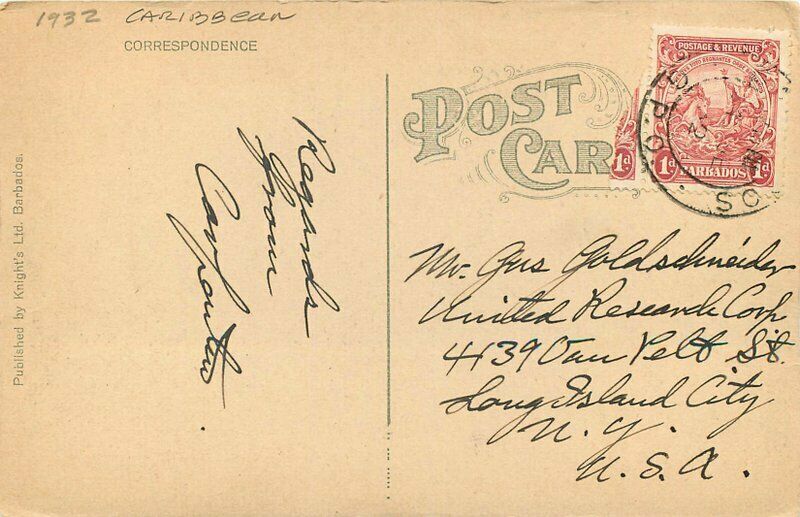 1932 CARIBBEAN
CORRESPONDENCE
Published by Knight's Ltd. Barbados.
POST
CAR
POSTAGE & REVENUE
1d
1d BARBADOS 1d
G.P.O.
Regards
from
Mr. Gus Goldschneider
United Research Corp
4139 Van Pelt St.
Long Island City
N.Y.
U.S.A.